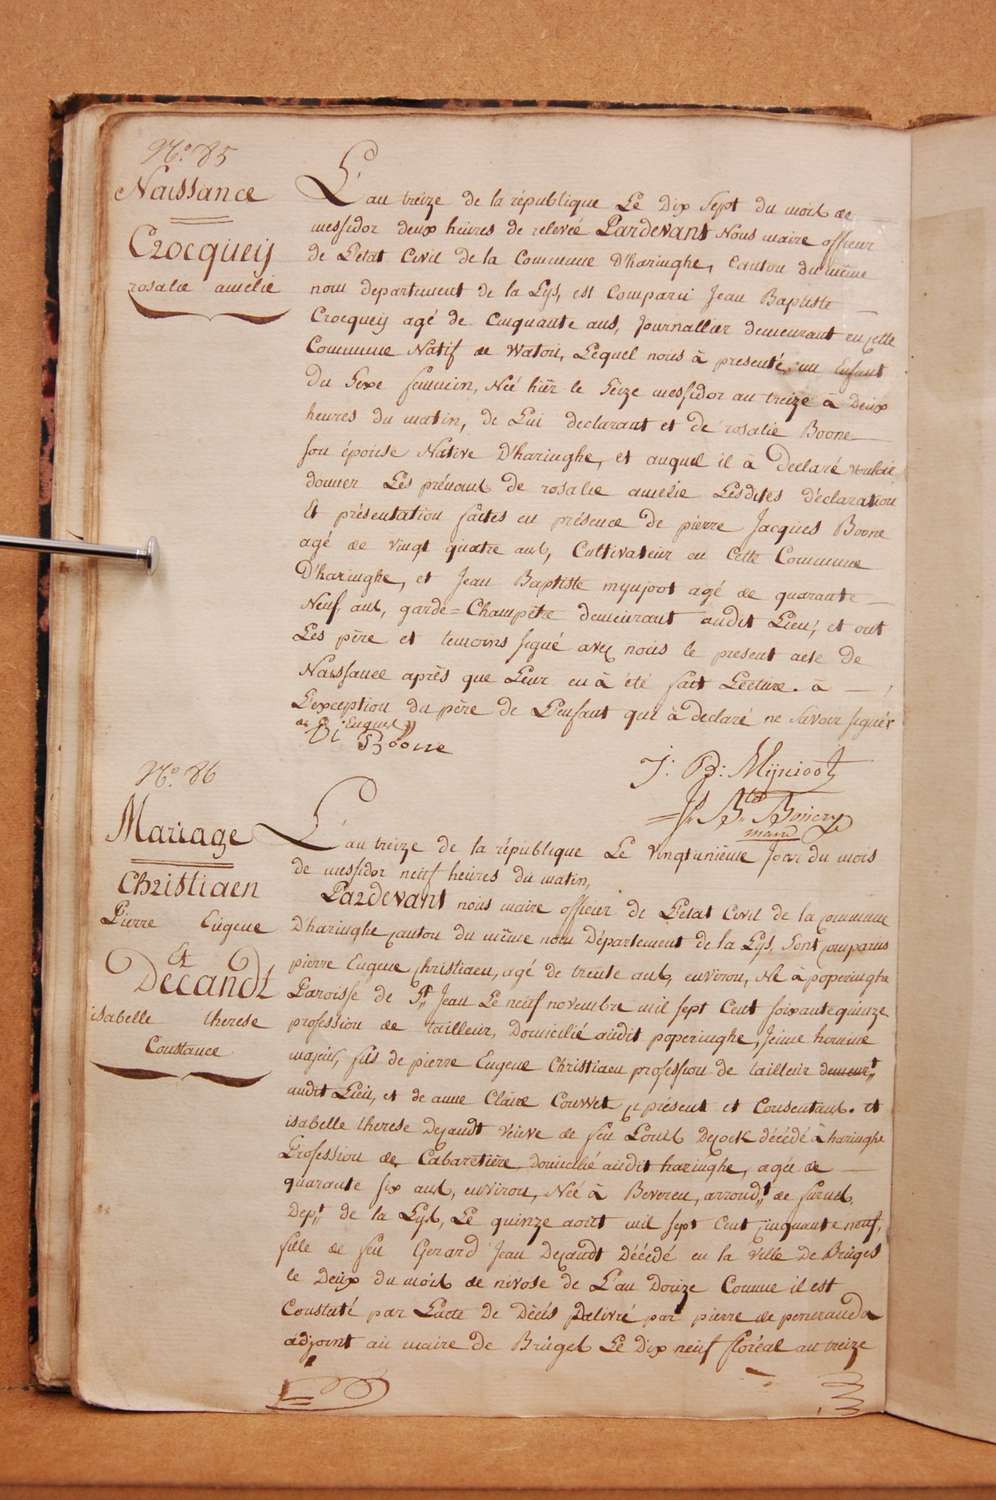 N.° 85
Naissance
Crocqueij
rosalie amelie
L'an treize de la république Le Dix Sept du mois de
messidor deux heures de relevée Pardevant Nous maire officier
de L'état Civil de la Commune D'haringhe, Canton du même
nom departement de la Lys, est Comparu Jean Baptiste
Crocqueij agé de Cinquante ans, Journallier demeurant en cette
Commune Natif de Watou, Lequel nous à presenté, un Enfant
Du Sexe feminin, Née hier le Seize messidor an treize à Deux
heures du matin, de Lui declarant et de rosalie Boone
son épouse Native D'haringhe, et auquel il à declaré vouloir
donner Les prénoms de rosalie amelie Lesdites déclaration
Et présentation faites en présence de pierre Jacques Boone
agé de vingt quatre ans, Cultivateur en Cette Commune
D'haringhe, et Jean Baptiste mynjoot agé de quarante
Neuf ans, garde=Champêtre demeurant audit Lieu; et ont
Les père et temoins signé avec nous le present acte de
Naissance après que Leur en à été fait Lecture. à
L'exception du père de L'enfant qui à declaré ne savoir signér
de ce Enquis
P: Boone
J: B: Mijnioot
N.° 86
Mariage
Christiaen
Pierre Eugene
Et
Decandt
isabelle therese
Constance
L'an treize de la république Le Vingtunième Jour du mois
de messidor neuf heures du matin,
Pardevant nous maire officier de L'état Civil de la Commune
D'haringhe canton du même nom Département de la Lys, Sont Comparus
pierre Eugene Christiaen, agé de trente ans, environ, Né à poperinghe
Paroisse de St. Jean Le neuf novembre mil sept Cent soixantequinze
profession de tailleur, Domicilié audit poperinghe, Jeune homme
majeur, fils de pierre Eugene Christiaen profession de tailleur demeurt.
audit Lieu, et de anne Claire Couwet ci présent et Consentant. et
isabelle therese Decandt Veuve de feu Louis Decock décédé à haringhe
Profession de Cabaretière, domicilié audit haringhe, agée de
quarante six ans, environ, Née à Beveren, arrondt. de furnes,
Dept. de la Lys, Le quinze août mil sept Cent cinquante neuf,
fille de feu Gerard Jean Decandt Décédé en la ville De Bruges
le Deux du mois de nivose de L'an Douze Comme il est
Constaté par L'acte de Décés Delivré par pierre de peneranda
adjoint au maire de Bruges Le Dix neuf floréal an treize